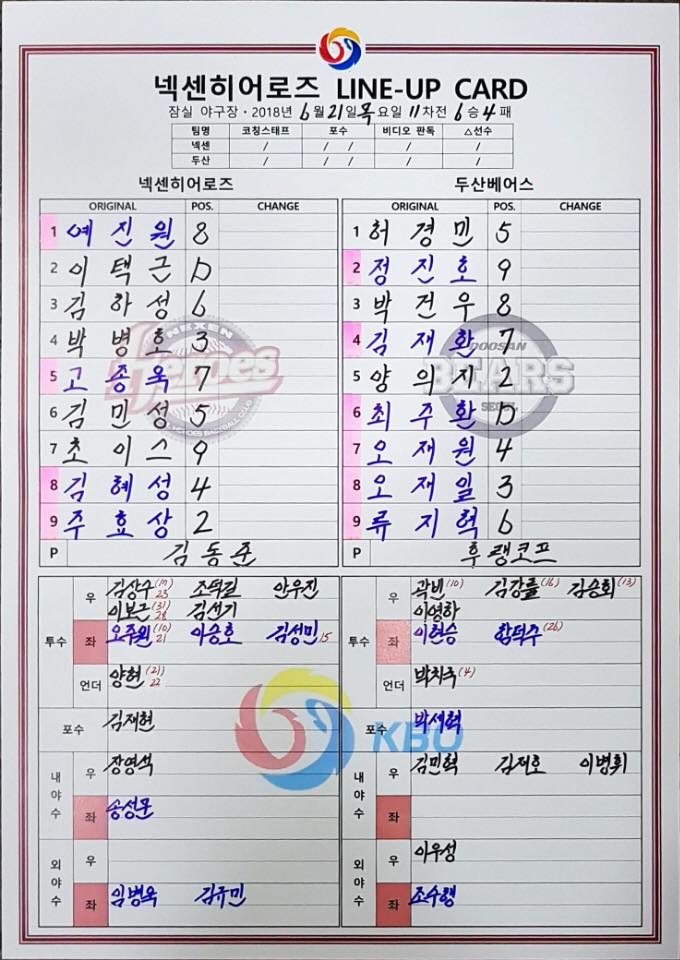 넥센히어로즈 LINE-UP CARD
잠실 야구장 · 2018년 6월 21일 목요일 11차전 6승 4패
팀명 코칭스태프 포수 비디오 판독 △선수
넥센 / / / / /
두산 / / / / /
넥센히어로즈
ORIGINAL POS. CHANGE
1 예진원 8
2 이택근 D
3 김하성 6
4 박병호 3
5 고종욱 7
6 김민성 5
7 초이스 9
8 김혜성 4
9 주효상 2
P 김동준
NEXEN Heroes
두산베어스
ORIGINAL POS. CHANGE
1 허경민 5
2 정진호 9
3 박건우 8
4 김재환 7
5 양의지 2
6 최주환 D
7 오재원 4
8 오재일 3
9 류지혁 6
P 후랭코프
DOOSAN BEARS SEOUL
투수
우 김상수 (19) 23 조덕길 안우진
이보근 (31) 28 김선기
좌 오주원 (10) 21 이승호 김성민 15
언더 양현 (21) 22
포수 김재현
내야수
우 장영석
좌 송성문
외야수
우
좌 임병욱 김규민
투수
우 곽빈 (10) 김강률 (16) 김승회 (13)
이영하
좌 이현승 함덕주 (26)
언더 박치국 (4)
포수 박세혁
내야수
우 김민혁 김재호 이병휘
좌
외야수
우 이우성
좌 조수행
KBO